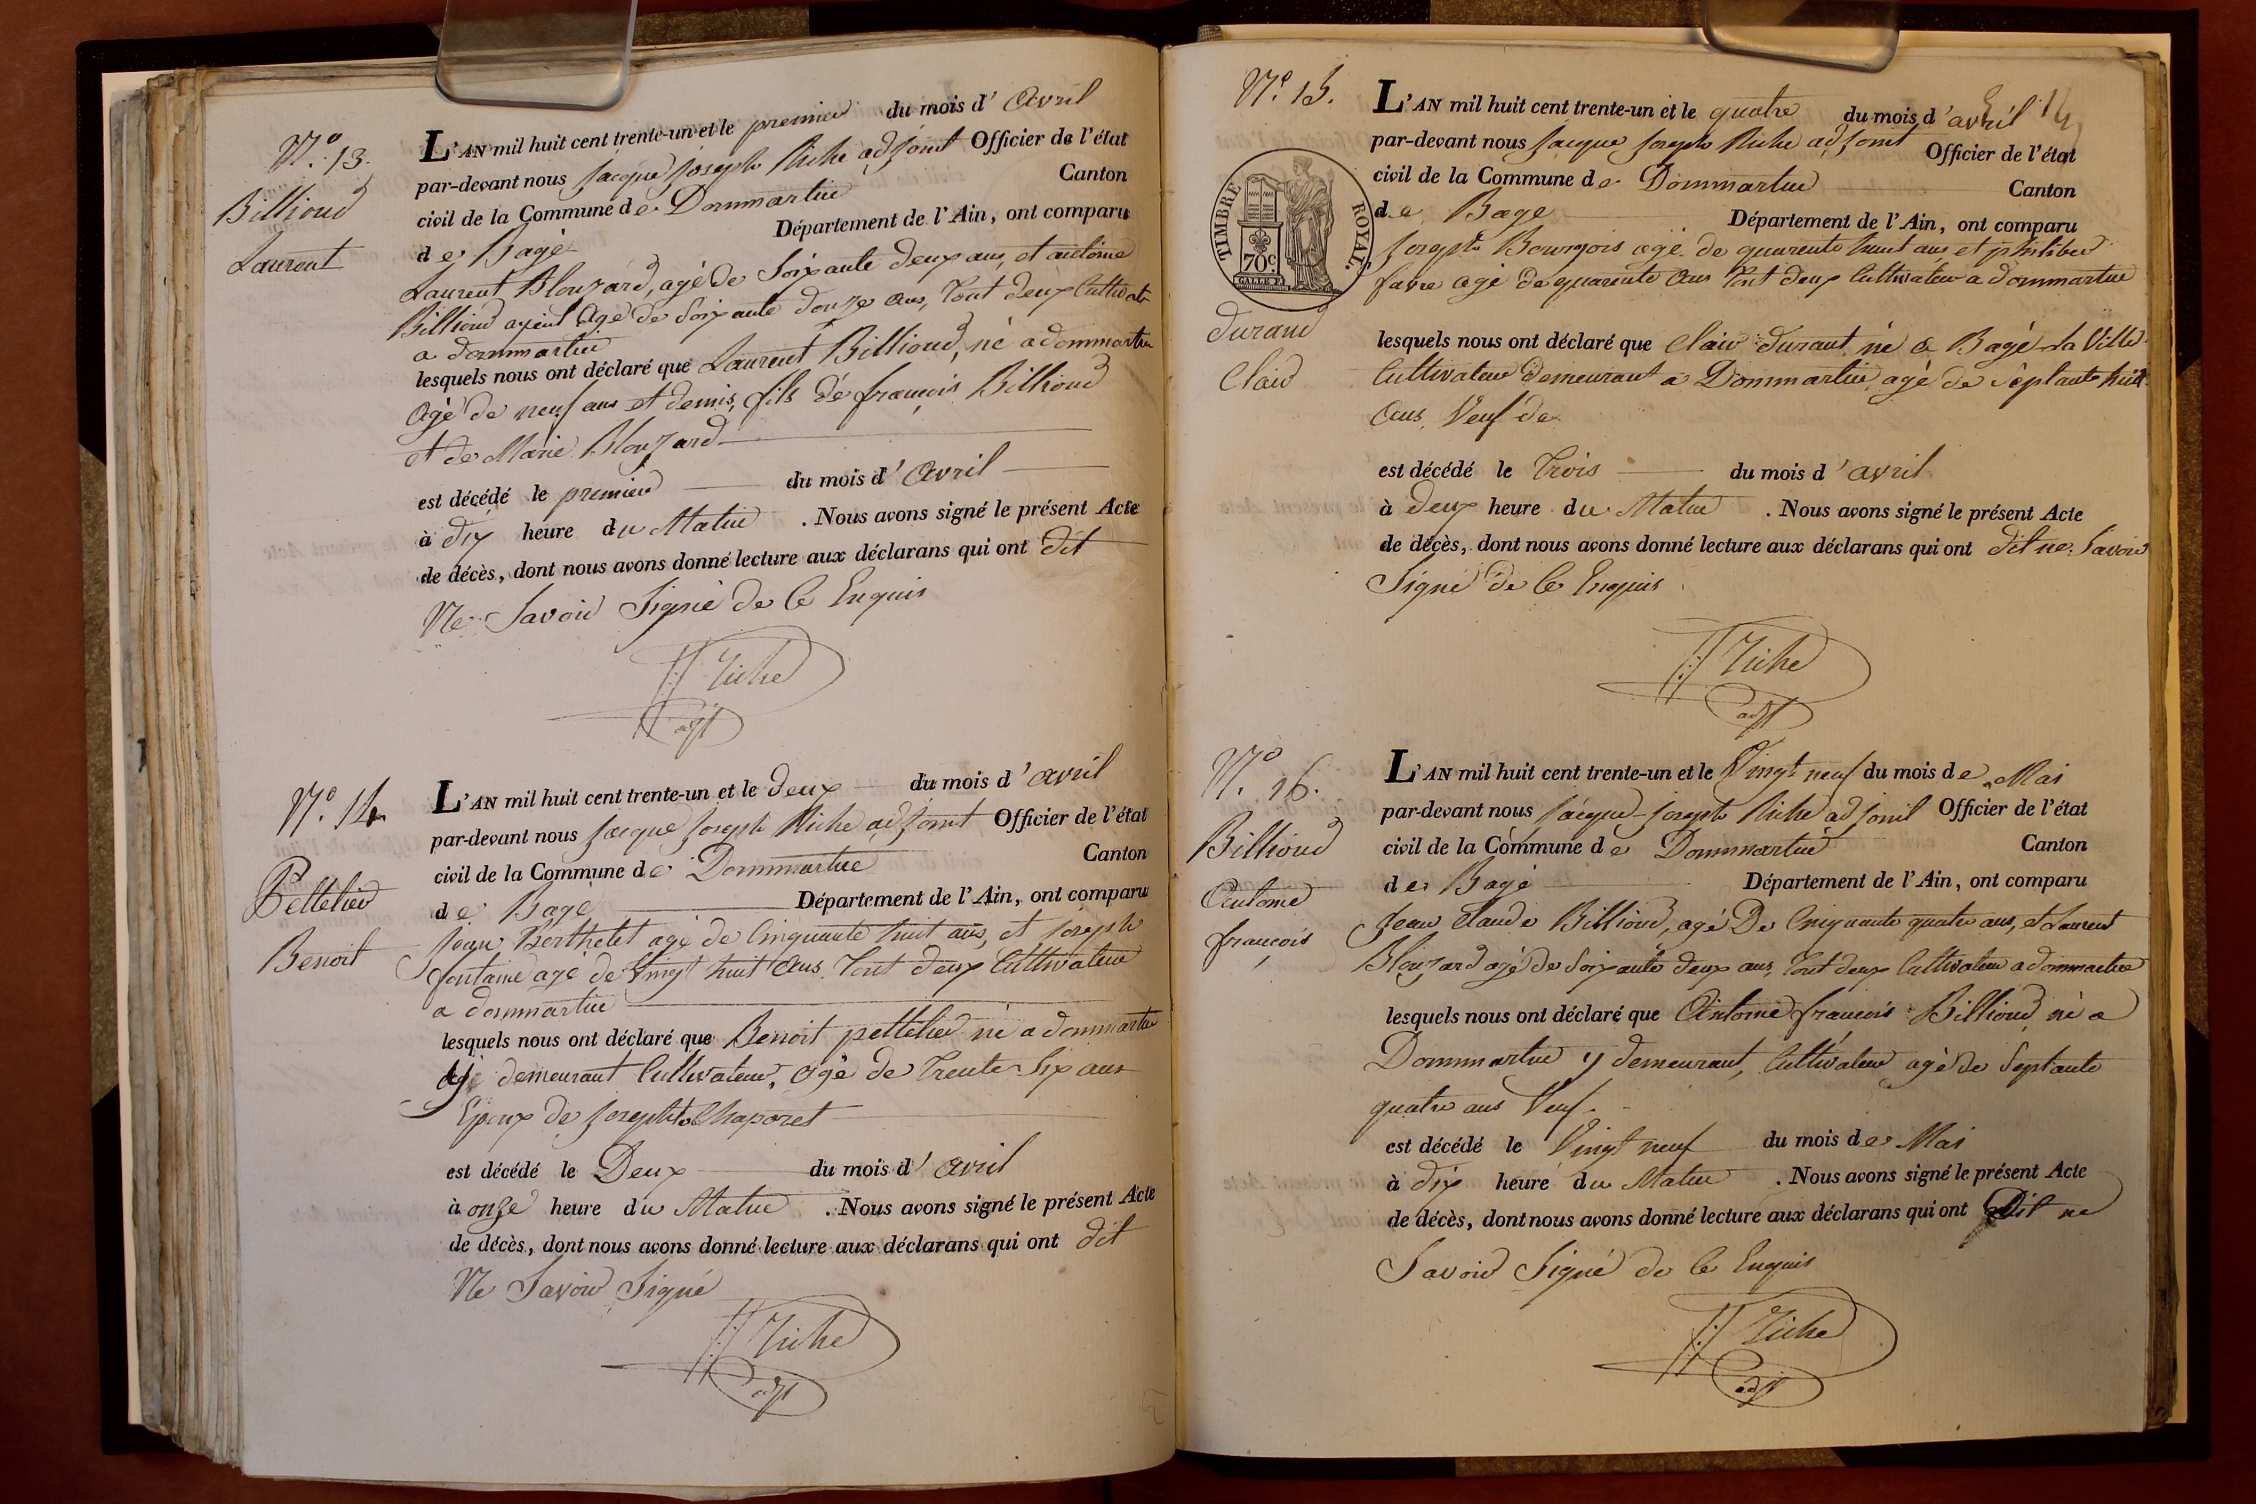 N.o 13.
Billioud
Laurent
L'AN mil huit cent trente-un et le premier du mois d'Avril
par-devant nous Jacque Joseph Riche adjoint Officier de l'état
civil de la Commune de Dommartin Canton
de Bagé Département de l'Ain, ont comparu
Laurent Blouzard, agé de Soixante deux ans, et antoine
Billioud ayeul Agé de Soixante douze ans, tout deux Cultivate
a dommartin
lesquels nous ont déclaré que Laurent Billioud, né a dommartin
Agé de neuf ans et demis, fils de françois Billioud
et de Marie Blouzard
est décédé le premier du mois d'Avril
à dix heure du Matin . Nous avons signé le présent Acte
de décès, dont nous avons donné lecture aux déclarans qui ont dit
Ne Savoir Signé de Ce Enquis
JJ Riche
adjt
N.o 14
Pelletier
Benoit
L'AN mil huit cent trente-un et le deux du mois d'avril
par-devant nous Jacque Joseph Riche adjoint Officier de l'état
civil de la Commune de Dommartin Canton
de Bagé Département de l'Ain, ont comparu
Jean Berthelet agé de Cinquante huit ans, et joseph
fontaine agé de Vingt huit Ans tout deux Cultivateur
a dommartin
lesquels nous ont déclaré que Benoit pelletier né a dommartin
y demeurant Cultivateur, agé de trente Six ans
Epoux de josephte Chaporet
est décédé le Deux du mois d'avril
à onze heure du Matin . Nous avons signé le présent Acte
de décès, dont nous avons donné lecture aux déclarans qui ont dit
Ne Savoir Signé
JJ Riche
adjt
N.o 15.
14
TIMBRE ROYAL.
70c.
durand
Clair
L'AN mil huit cent trente-un et le quatre du mois d'avril
par-devant nous Jacque Joseph Riche adjoint Officier de l'état
civil de la Commune de Dommartin Canton
de Bage Département de l'Ain, ont comparu
Joseph Bourgois agé de quarente huit ans et philiber
favre agé de quarente Ans tout deux Cultivateur a dommartin
lesquels nous ont déclaré que Clair durant né a Bagé la Ville
Cultivateur demeurant a Dommartin agé de Septante huit
Ans Veuf de
est décédé le trois du mois d'avril
à deux heure du Matin . Nous avons signé le présent Acte
de décès, dont nous avons donné lecture aux déclarans qui ont dit ne Savoir
Signé de Ce Enquis
JJ Riche
adjt
N.o 16.
Billioud
Antoine
françois
L'AN mil huit cent trente-un et le Vingt neuf du mois de Mai
par-devant nous Jacque Joseph Riche adjoint Officier de l'état
civil de la Commune de Dommartin Canton
de Bagé Département de l'Ain, ont comparu
Jean Claude Billioud, agé De Cinquante quatre ans, et Laurent
Blouzard agé de Soixante deux ans, tout deux Cultivateur a dommartin
lesquels nous ont déclaré que Antoine françois Billioud né a
Dommartin y demeurant, Cultivateur agé de Septante
quatre ans Veuf
est décédé le Vingt neuf du mois de Mai
à dix heure du Matin . Nous avons signé le présent Acte
de décès, dont nous avons donné lecture aux déclarans qui ont Dit ne
Savoir Signé de Ce Enquis
JJ Riche
adjt